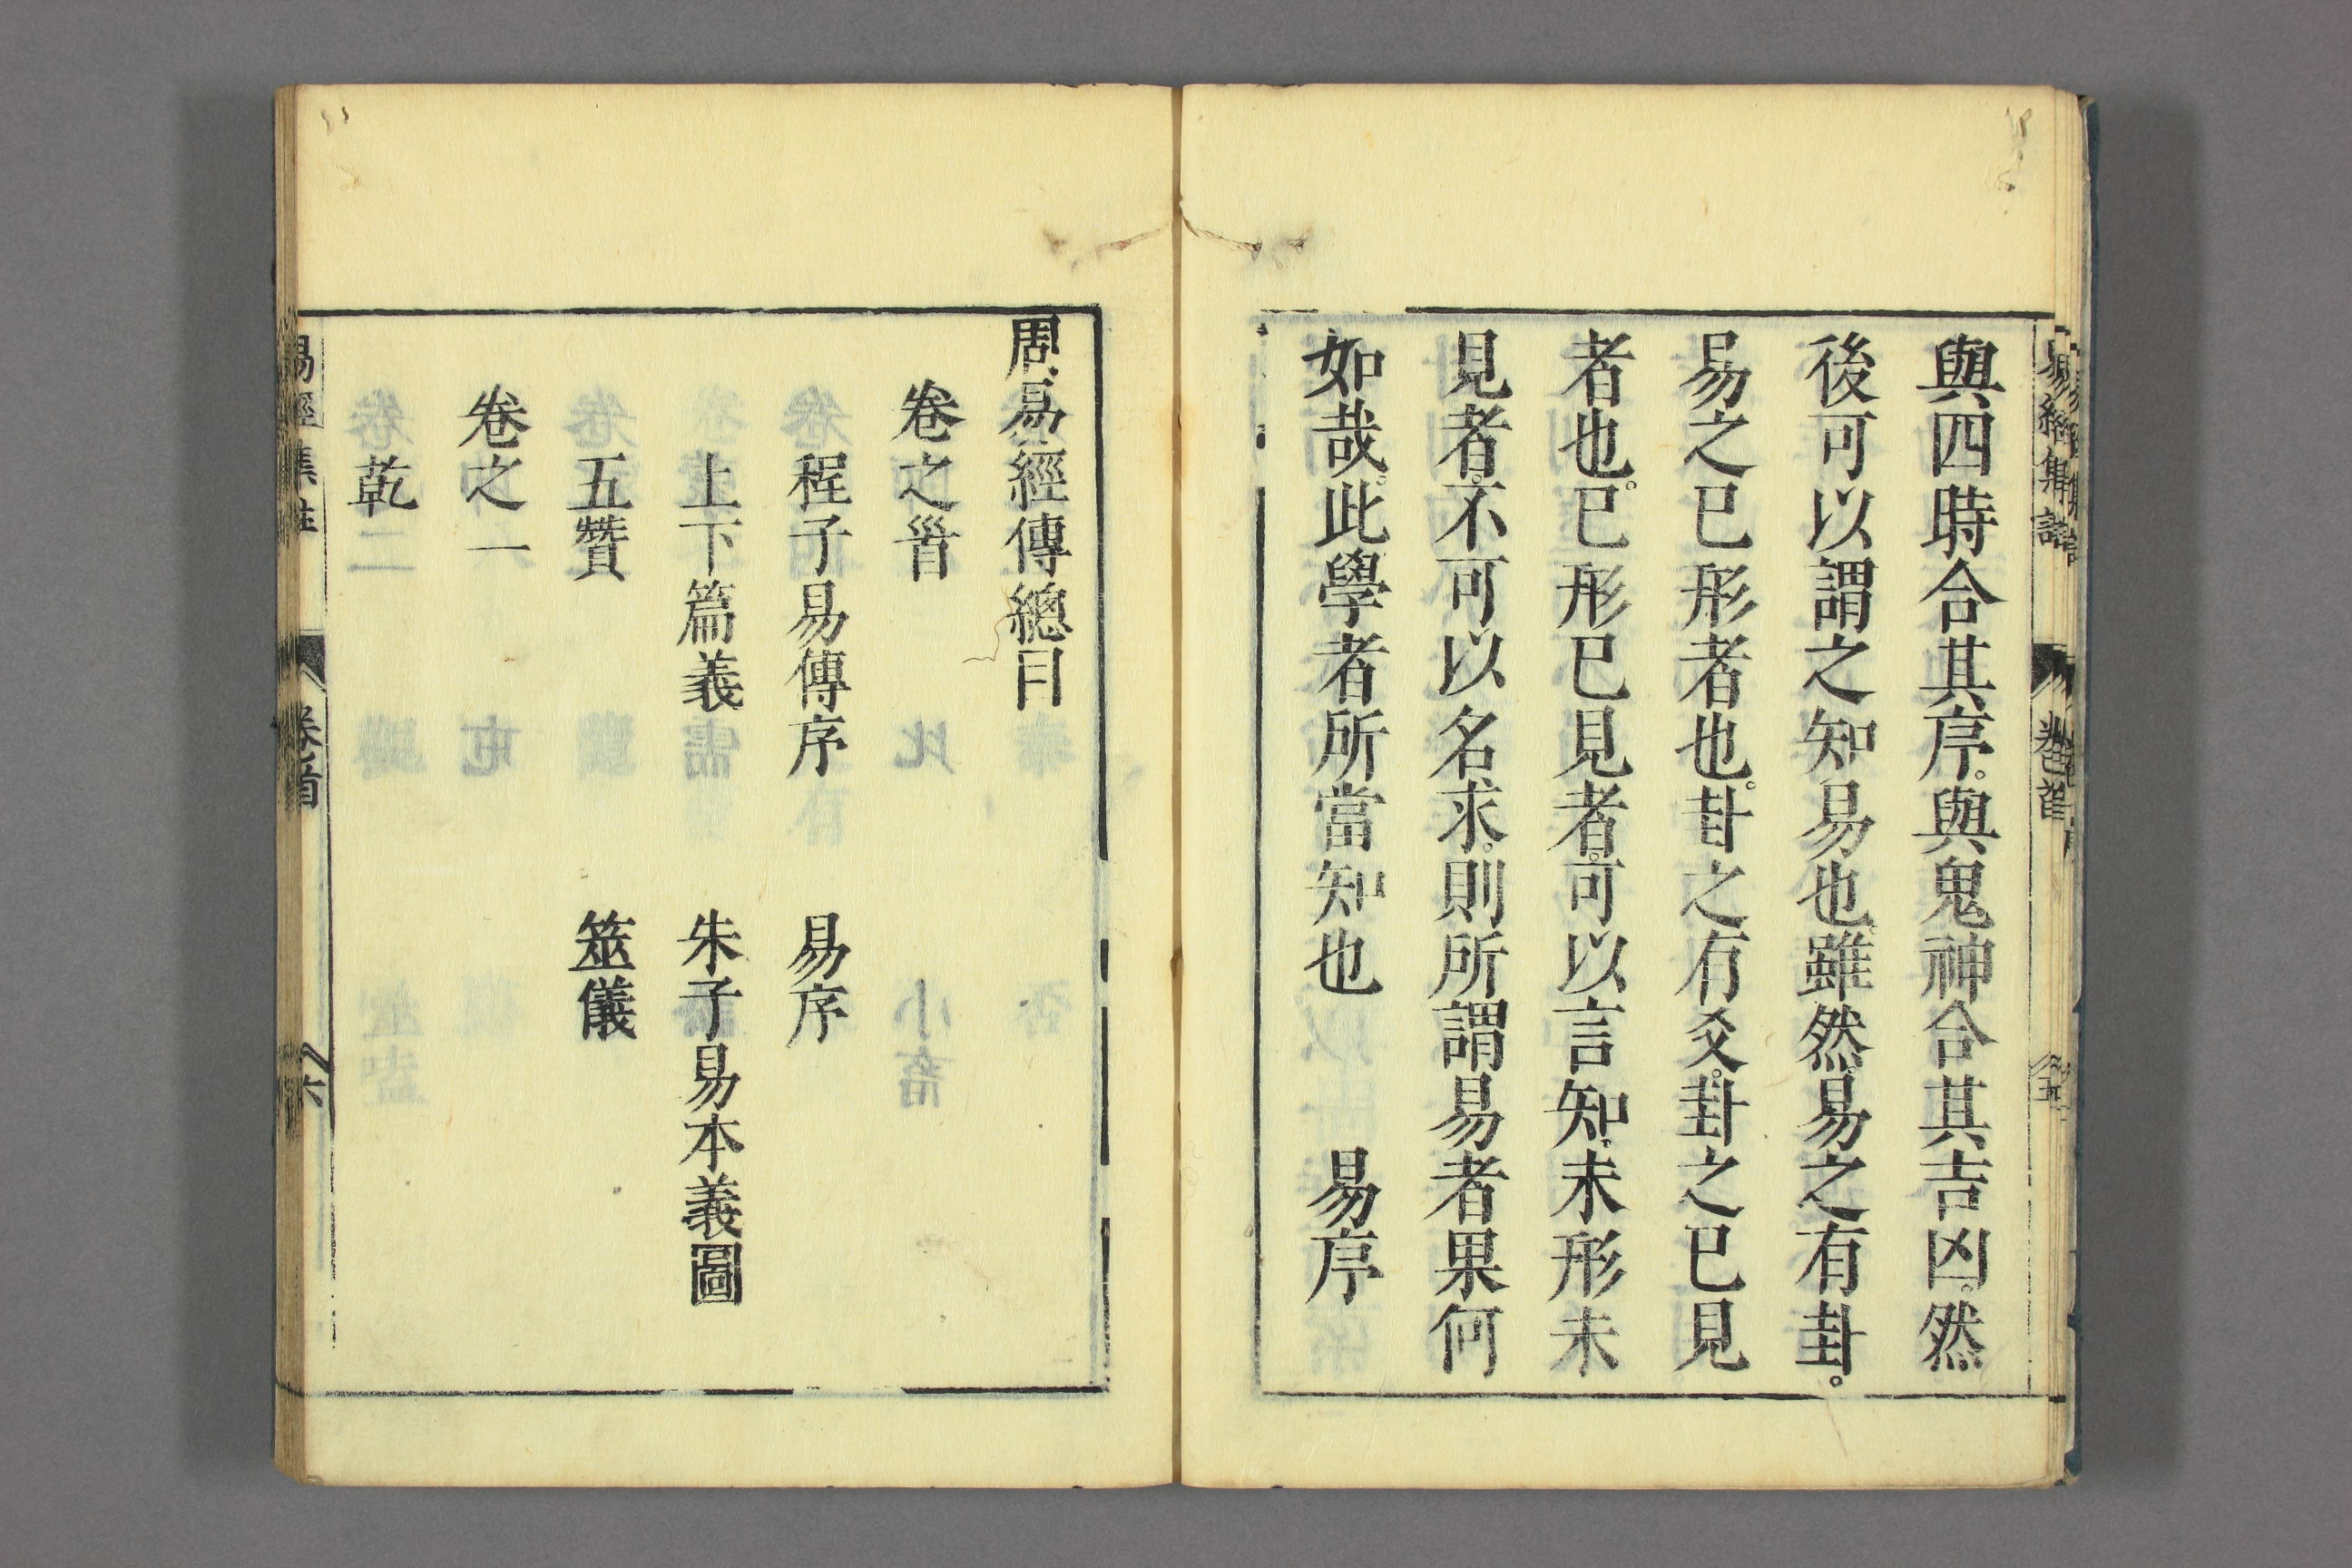 與四時合其序。與鬼神合其吉凶。然
後可以謂之知易也。雖然。易之有卦。
易之已形者也。卦之有爻。卦之已見
者也。已形已見者。可以言知。未形未
見者。不可以名求。則所謂易者。果何
如哉。此學者所當知也。 易序
周易經傳總目
卷之首
程子易傳序 易序
上下篇義 朱子易本義圖
五贊 筮儀
卷之一
乾
卷首
六